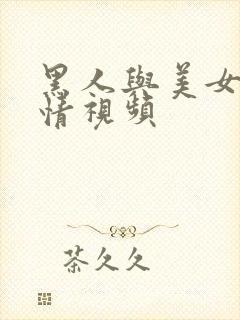 黑人與美女
情視頻
茶久久